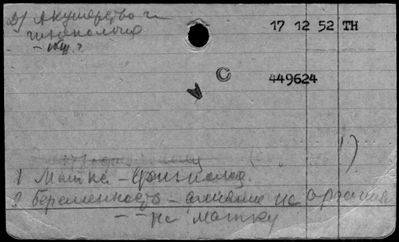 Д) Акушерство и
гинекология
- общ.
17 12 52 TH
C
449624
1 Матка -
2 беременность - влияние на организм
- " - на матку